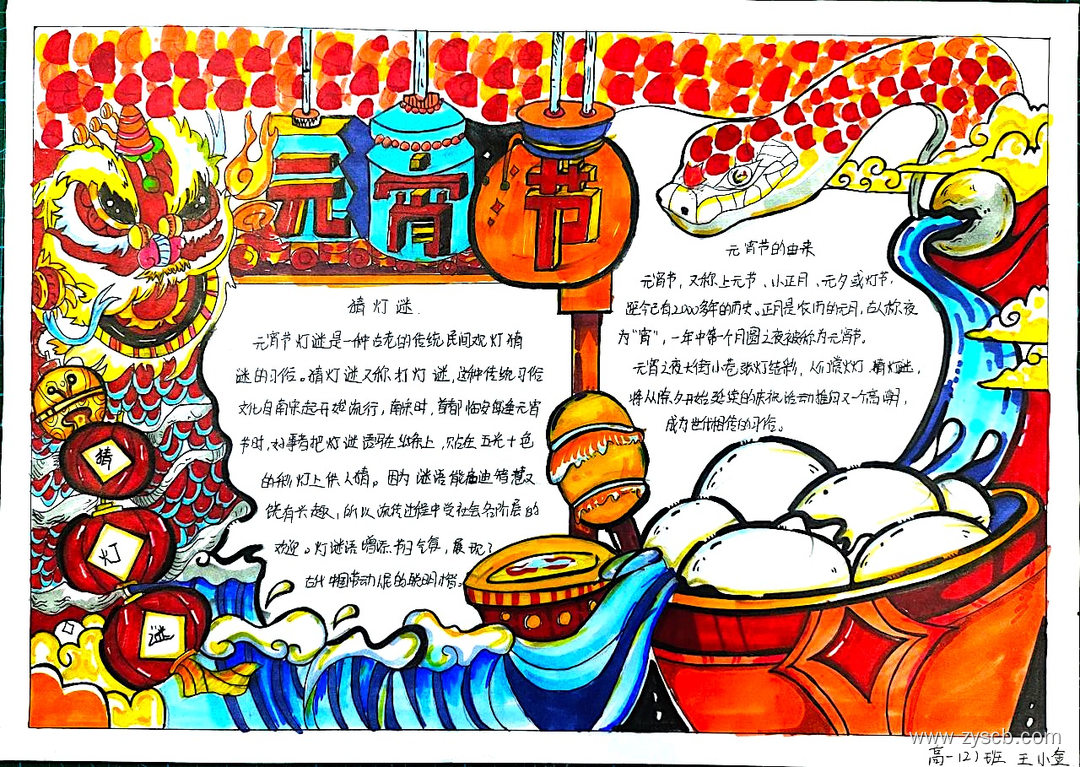 元宵节
猜灯谜
元宵节灯谜是一种古老的传统民间观灯猜
谜的习俗。猜灯谜又称打灯谜,这种传统习俗
文化自南宋起开始流行,南宋时,首都临安每逢元宵
节时,好事者把灯谜谱写在纸条上,贴在五光十色
的彩灯上供人猜。因为谜语能启迪智慧又
饶有兴趣,所以流传过程中受社会各阶层的
欢迎。灯谜语
古代中国劳动人民的聪明
元宵节的由来
元宵节,又称上元节、小正月、元夕或灯节,
距今已有2000多年的历史,正月是农历的元月,古人称夜
为"宵",一年中第一个月圆之夜被称为元宵节。
元宵之夜大街小巷张灯结彩,人们赏灯,猜灯谜,
将从除夕开始延续的庆祝活动推向又一个高潮,
成为世代相传的习俗。
猜
灯
谜
www.zyscb.com
高一(2)班 王小